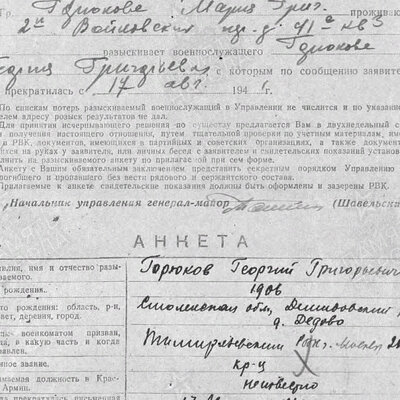 Гр. Горюкова Мария Григ. прожива
2й Войковский пр. д. 41а кв 3
разыскивает военнослужащего Горюкова
Георгия Григорьев
с которым по сообщению заявите
прекратилась с 17 авг. 194
По спискам потерь разыскиваемый военнослужащий в Управлении не числится и по указанно
лем адресу розыск результатов не дал.
Для принятия исчерпывающего решения по существу предлагается Вам в двухнедельный с
и получения настоящего отношения, путем тщательной проверки по учетным материалам, име
в РВК, документов, имеющихся в партийных и советских организациях, а также документ
ихся на руках у заявителя, или личных бесед с заявителем и свидетельских показаний установ
лнить на разыскиваемого анкету по прилагаемой при сем форме.
Анкету с Вашим обязательным заключением представить секретным порядком Управлению
погибшего и пропавшего без вести рядового и сержантского состава.
Прилагаемые к анкете свидетельские показания должны быть оформлены и заверены РВК.
Начальник управления генерал-майор (Шавельски
АНКЕТА
милия, имя и отчество разы-
ваемого. Горюков Георгий Григорьевич
рождения. 1906
то рождения: область, р-н,
вет, деревня, город. Смоленская обл, Демидовский
д. Дедово
им военкоматом призван,
а, в какую часть и когда
авлен. Тимирязевским рвк. Москвы
ное звание. кр-ц
маемая должность в Крас-
Армии. неизвестно
да прекратилась письменная